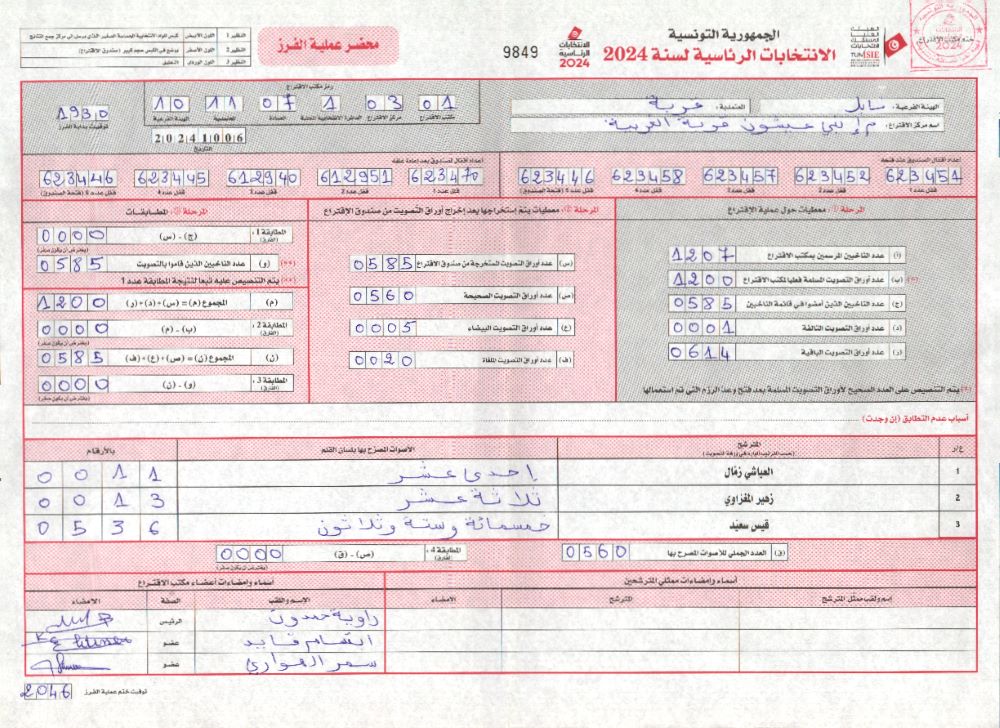 الجمهورية التونسية
الانتخابات الرئاسية لسنة 2024
الانتخابات الرئاسية 2024
9849
محضر عملية الفرز
النظير 1 اللون الأبيض
النظير 2 اللون الأصفر يوضع في الكيس حجم كبير (صندوق الاقتراع)
النظير 3 اللون الوردي التعليق
ختم مكتب الإقتراع
الهيئة الفرعية: نابل
المعتمدية: قربة
اسم مركز الاقتراع:
رمز مكتب الاقتراع
01 03 1 07 11 10
مكتب الاقتراع مركز الاقتراع الدائرة الانتخابية المحلية العمادة المعتمدية الهيئة الفرعية
1930
توقيت بداية الفرز
20241006
التاريخ
أعداد أقفال الصندوق عند فتحه
623451 623452 623457 623458 623446
قفل عدد 1 قفل عدد 2 قفل عدد 3 قفل عدد 4 قفل عدد 5 (فتحة الصندوق)
أعداد أقفال الصندوق بعد إعادة غلقه
623470 612951 612940 623445 623446
قفل عدد 1 قفل عدد 2 قفل عدد 3 قفل عدد 4 قفل عدد 5 (فتحة الصندوق)
المرحلة ①: معطيات حول عملية الاقتراع
(أ) عدد الناخبين المرسمين بمكتب الاقتراع 1207
(ب) عدد أوراق التصويت المسلمة فعليا لمكتب الاقتراع 1200
(ج) عدد الناخبين الذين أمضوا في قائمة الناخبين 0585
(د) عدد أوراق التصويت التالفة 0001
(ر) عدد أوراق التصويت الباقية 0614
(*) يتم التنصيص على العدد الصحيح لأوراق التصويت المسلمة بعد فتح وعد الرزم التي تم استعمالها
المرحلة ②: معطيات يتم إستخراجها بعد إخراج أوراق التصويت من صندوق الإقتراع
(س) عدد أوراق التصويت المستخرجة من صندوق الاقتراع 0585
(ص) عدد أوراق التصويت الصحيحة 0560
(ع) عدد أوراق التصويت البيضاء 0005
(ف) عدد أوراق التصويت الملغاة 0020
المرحلة ③: المطابقات
المطابقة 1: (الفارق) (ج) - (س) 0000
(يفترض أن يكون صفر)
(**) (و) عدد الناخبين الذين قاموا بالتصويت 0585
(**) يتم التنصيص عليه تبعا لنتيجة المطابقة عدد 1
(م) المجموع (م) = (س)+(د)+(ر) 1200
المطابقة 2: (الفارق) (ب) - (م) 0000
(يفترض أن يكون صفر)
(ن) المجموع (ن) = (ص)+(ع)+(ف) 0585
المطابقة 3: (الفارق) (و) - (ن) 0000
(يفترض أن يكون صفر)
أسباب عدم التطابق (إن وجدت)
ع/ر المترشح الأصوات المصرح بها بلسان القلم بالأرقام
(حسب الترتيب الوارد في ورقة التصويت)
1 العياشي زمّال إحدى عشر 0011
2 زهير المغزاوي ثلاثة عشر 0013
3 قيس سعيّد خمسمائة وستة وثلاثون 0536
(ق) العدد الجملي للأصوات المصرح بها 0560
المطابقة 4: (الفارق) (ص) - (ق) 0000
(يفترض أن يكون صفر)
أسماء وإمضاءات ممثلي المترشحين
إسم ولقب ممثل المترشح المترشح الامضاء
أسماء وإمضاءات أعضاء مكتب الاقتراع
الاسم واللقب الصفة الامضاء
الرئيس
عضو
سمر الهواري عضو
توقيت ختم عملية الفرز 2046